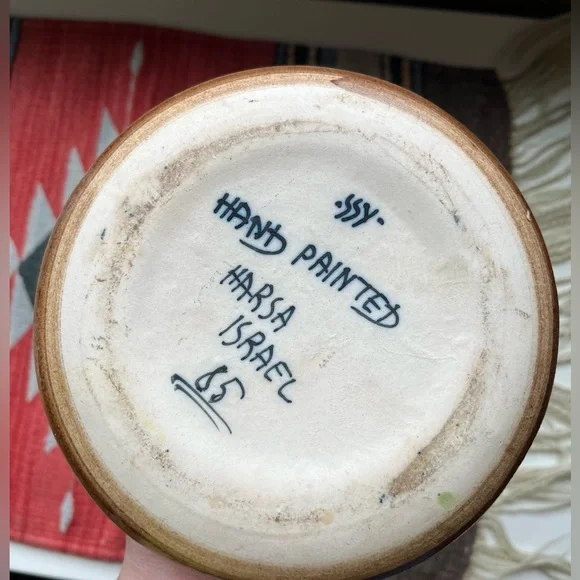 HAND PAINTED
HARSA
ISRAEL
85